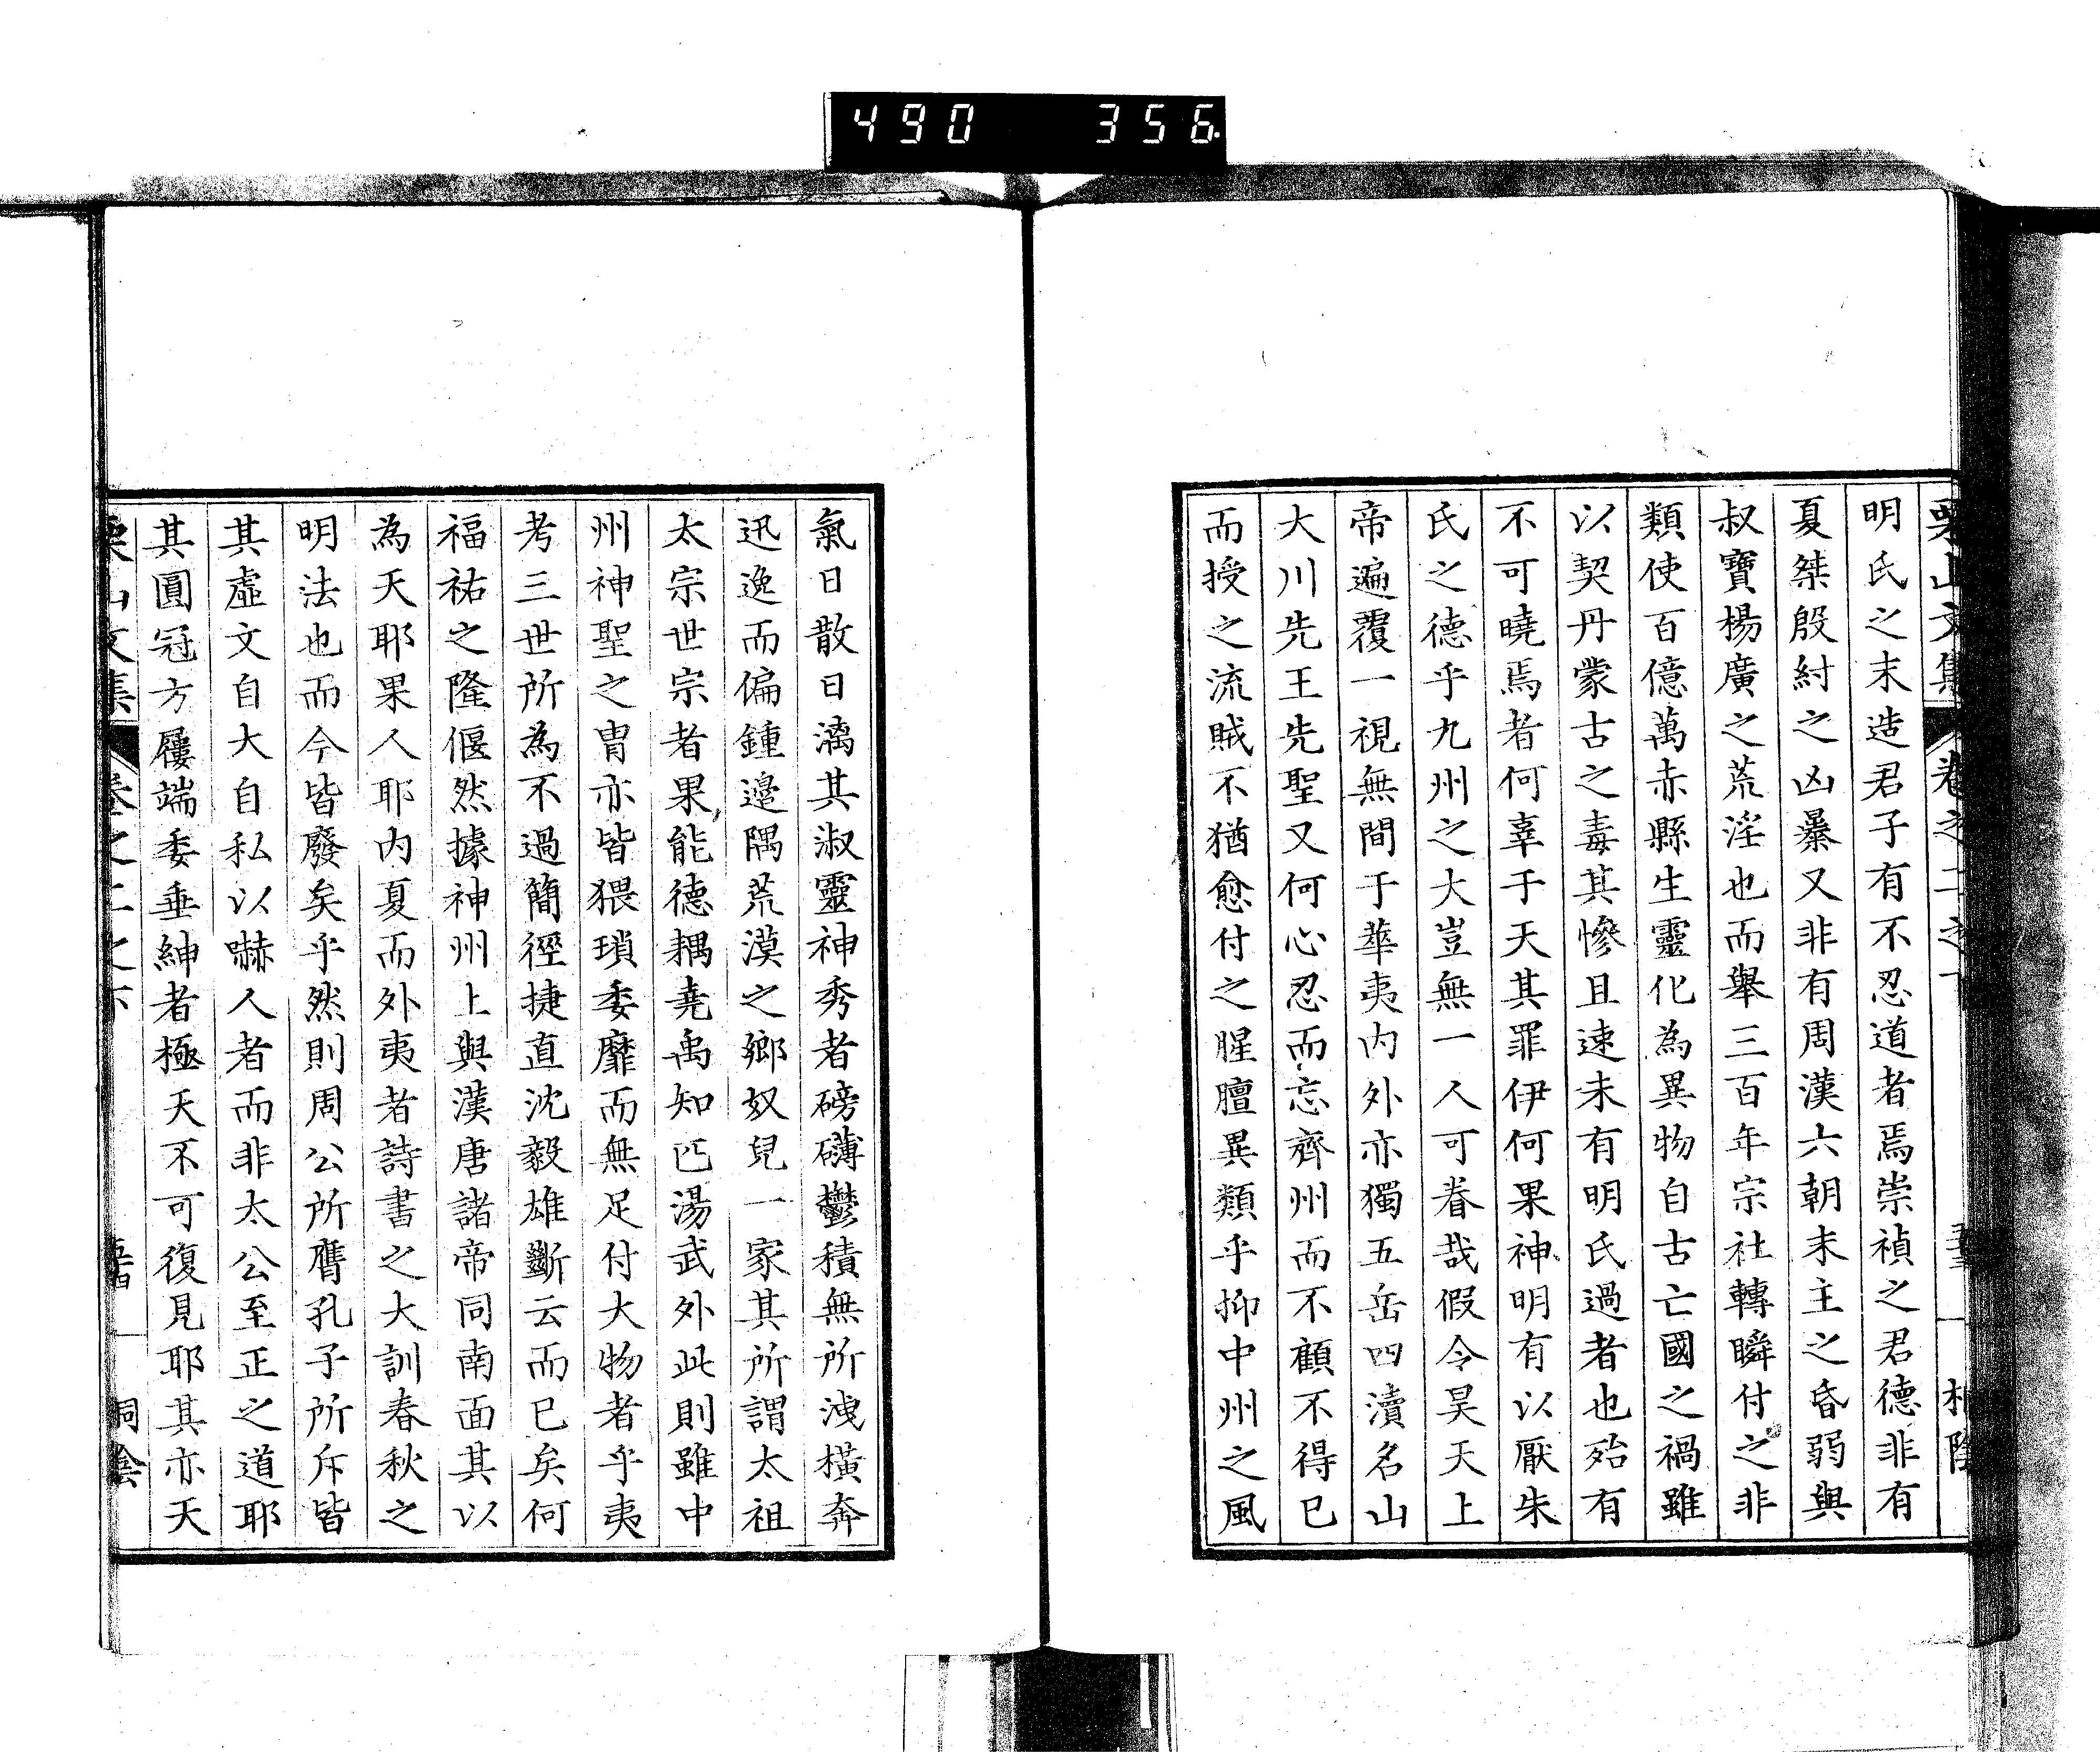 490 356
栗山文集 卷之二之下
明氏之末造君子有不忍道者焉崇禎之君德非有
夏桀殷紂之凶暴又非有周漢六朝末主之昏弱與
叔寶楊廣之荒淫也而舉三百年宗社轉瞬付之非
類使百億萬赤縣生靈化為異物自古亡國之禍雖
以契丹蒙古之毒其慘且速未有明氏過者也殆有
不可曉焉者何辜于天其罪伊何果神明有以厭朱
氏之德乎九州之大豈無一人可眷哉假令昊天上
帝遍覆一視無間于華夷內外亦獨五岳四瀆名山
大川先王先聖又何心忍而忘齊州而不顧不得已
而授之流賊不猶愈付之腥膻異類乎抑中州之風
氣日散日漓其淑靈神秀者磅礴鬱積無所洩橫奔
迅逸而偏鍾邊隅荒漠之鄉奴兒一家其所謂太祖
太宗世宗者果能德耦堯禹知匹湯武外此則雖中
州神聖之冑亦皆猥瑣委靡而無足付大物者乎夷
考三世所為不過簡徑捷直沈毅雄斷云而已矣何
福祐之隆偃然據神州上與漢唐諸帝同南面其以
為天耶果人耶內夏而外夷者詩書之大訓春秋之
明法也而今皆廢矣乎然則周公所膺孔子所斥皆
其虛文自大自私以嚇人者而非太公至正之道耶
其圓冠方屨端委垂紳者極天不可復見耶其亦天
栗山文集 卷之二之下 桐陰